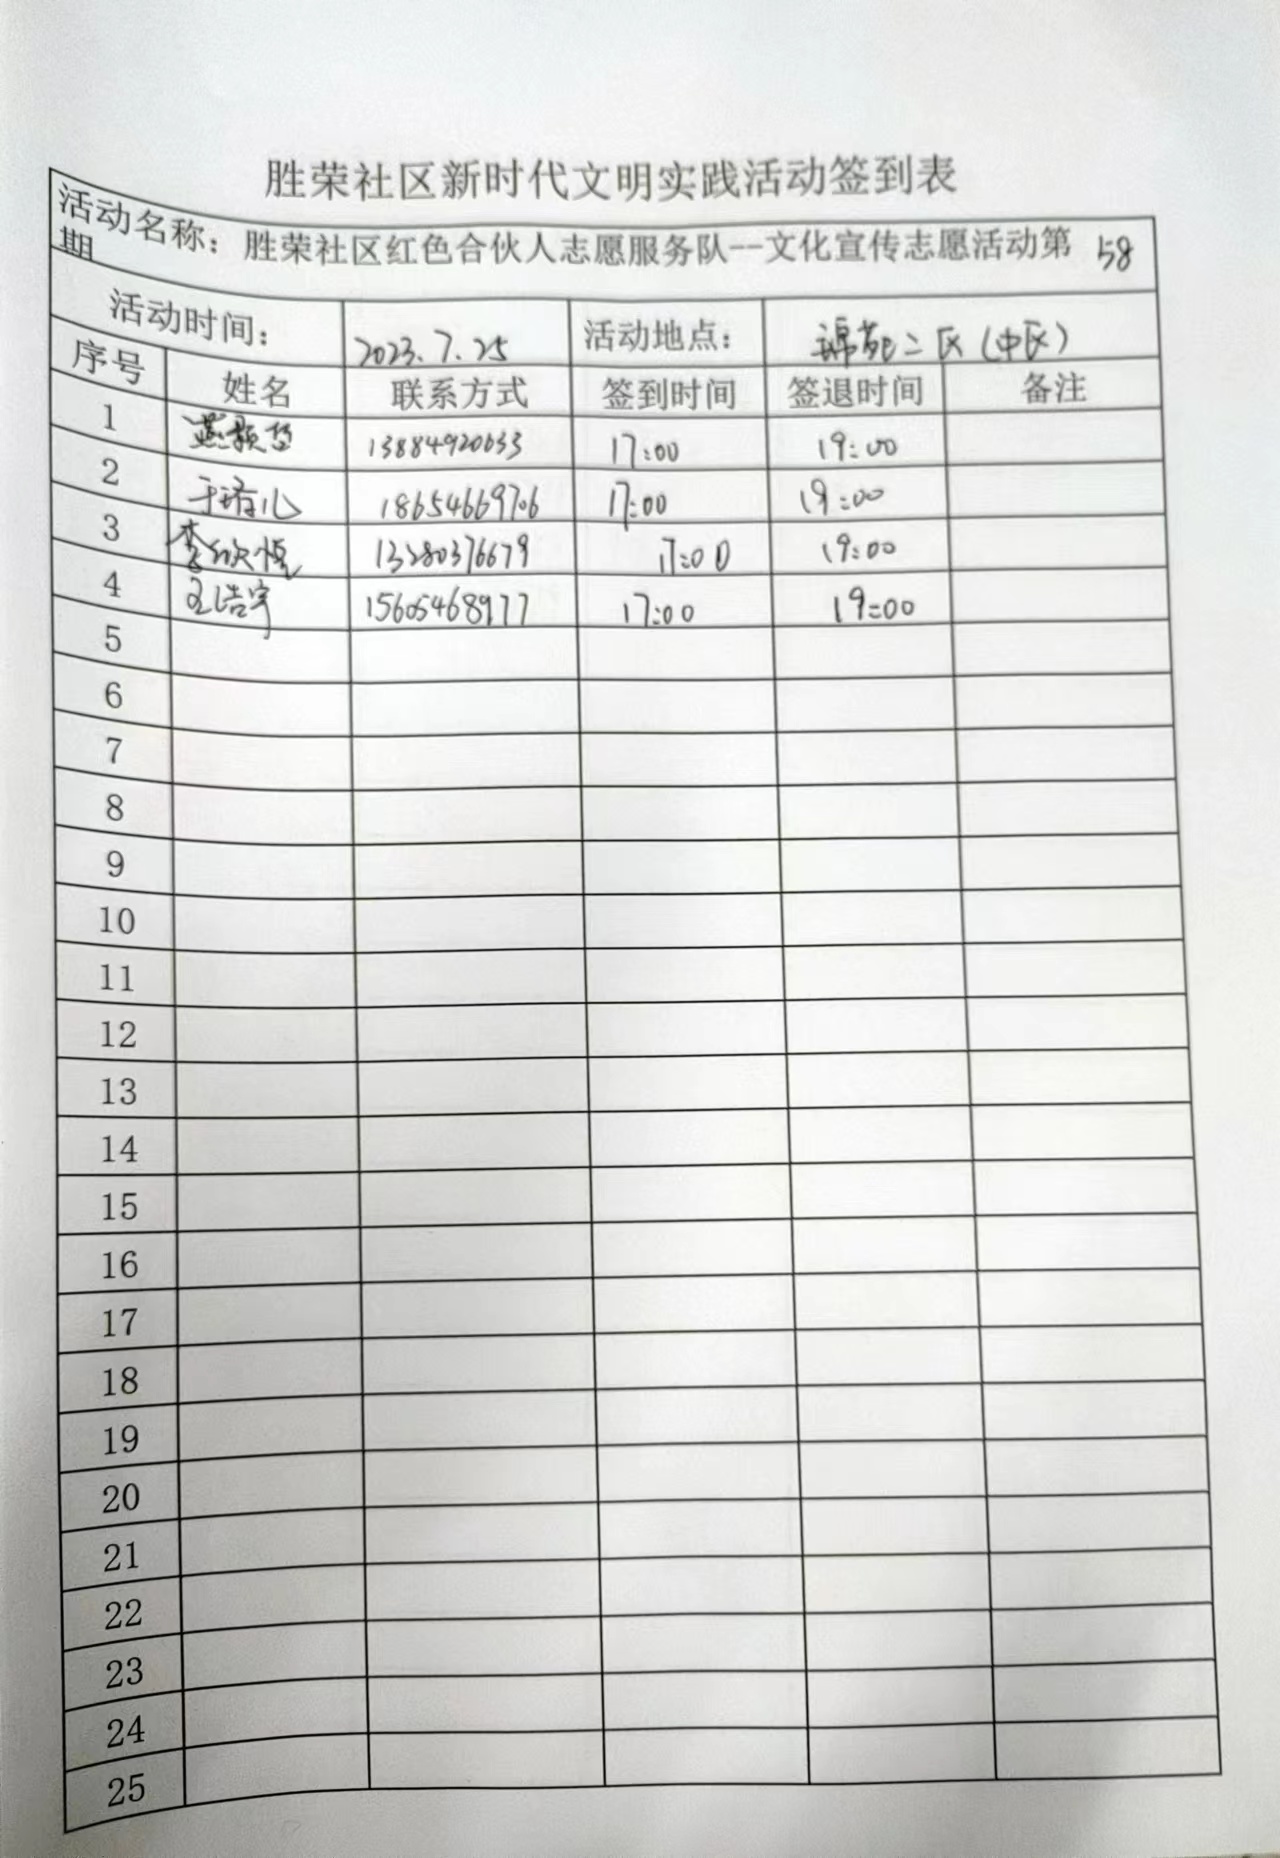 胜荣社区新时代文明实践活动签到表
活动名称：胜荣社区红色合伙人志愿服务队--文化宣传志愿活动第 58
期
活动时间： 2023.7.25 活动地点： 锦苑二区（中区）
序号 姓名 联系方式 签到时间 签退时间 备注
1 13884920633 17:00 19:00
2 18654669706 17:00 19:00
3 13280376679 17:00 19:00
4 王浩宇 15605468977 17:00 19:00
5
6
7
8
9
10
11
12
13
14
15
16
17
18
19
20
21
22
23
24
25